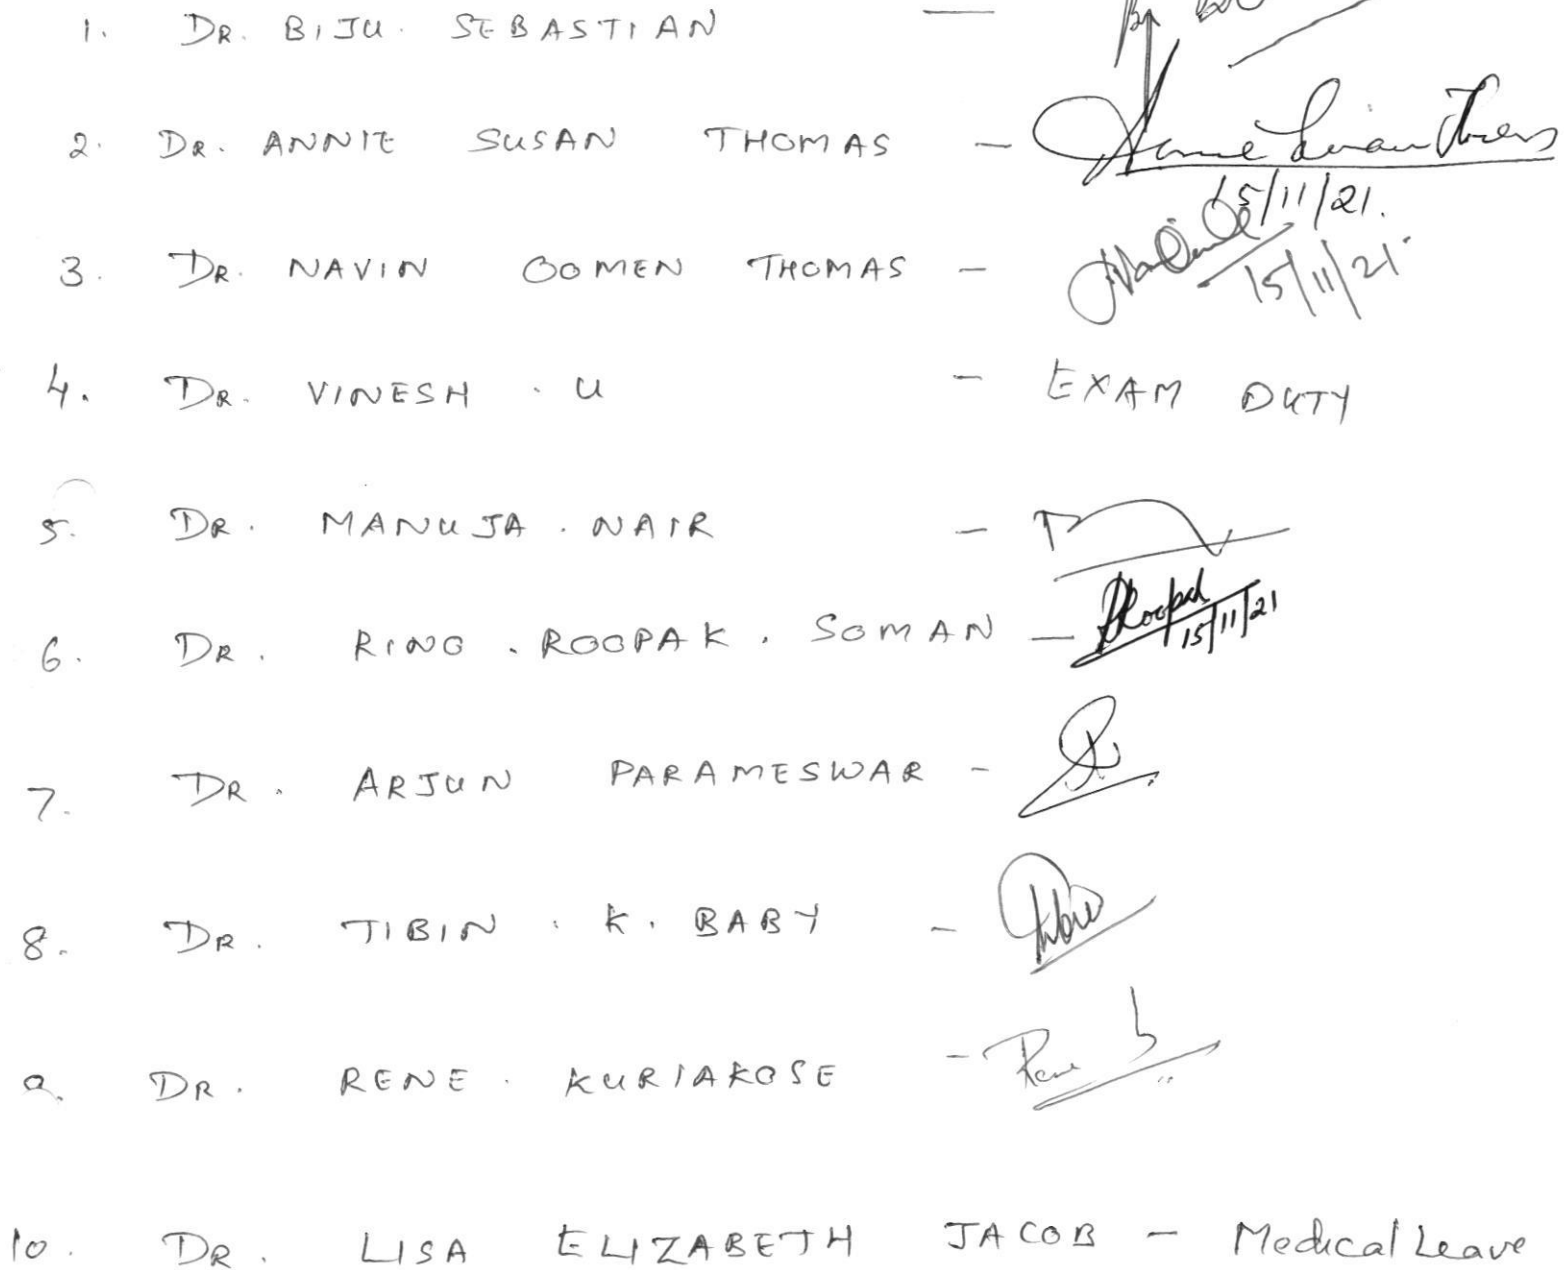 1. DR. BIJU. SEBASTIAN —
2. DR. ANNIE SUSAN THOMAS — Annie Susan Thomas
15/11/21.
3. DR. NAVIN OOMEN THOMAS —
15/11/21.
4. DR. VINESH . U — EXAM DUTY
5. DR. MANUJA . NAIR —
6. DR. RINO . ROOPAK . SOMAN — Roopak
15/11/21
7. DR. ARJUN PARAMESWAR —
8. DR. TIBIN . K. BABY —
9. DR. RENE . KURIAKOSE — Rene
10. DR. LISA ELIZABETH JACOB — Medical Leave